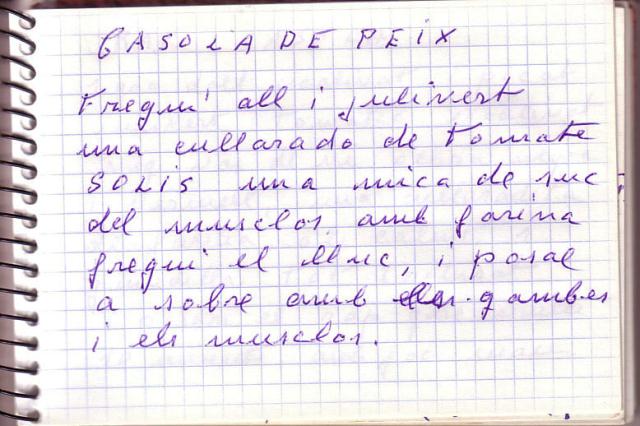 CASOLA DE PEIX
Fregui' all i julivert
una cullarado de Tomate
SOLIS una mica de suc
del musclos. amb farina
fregui el lluc, i posal
a sobre amb les gambes
i els musclos.